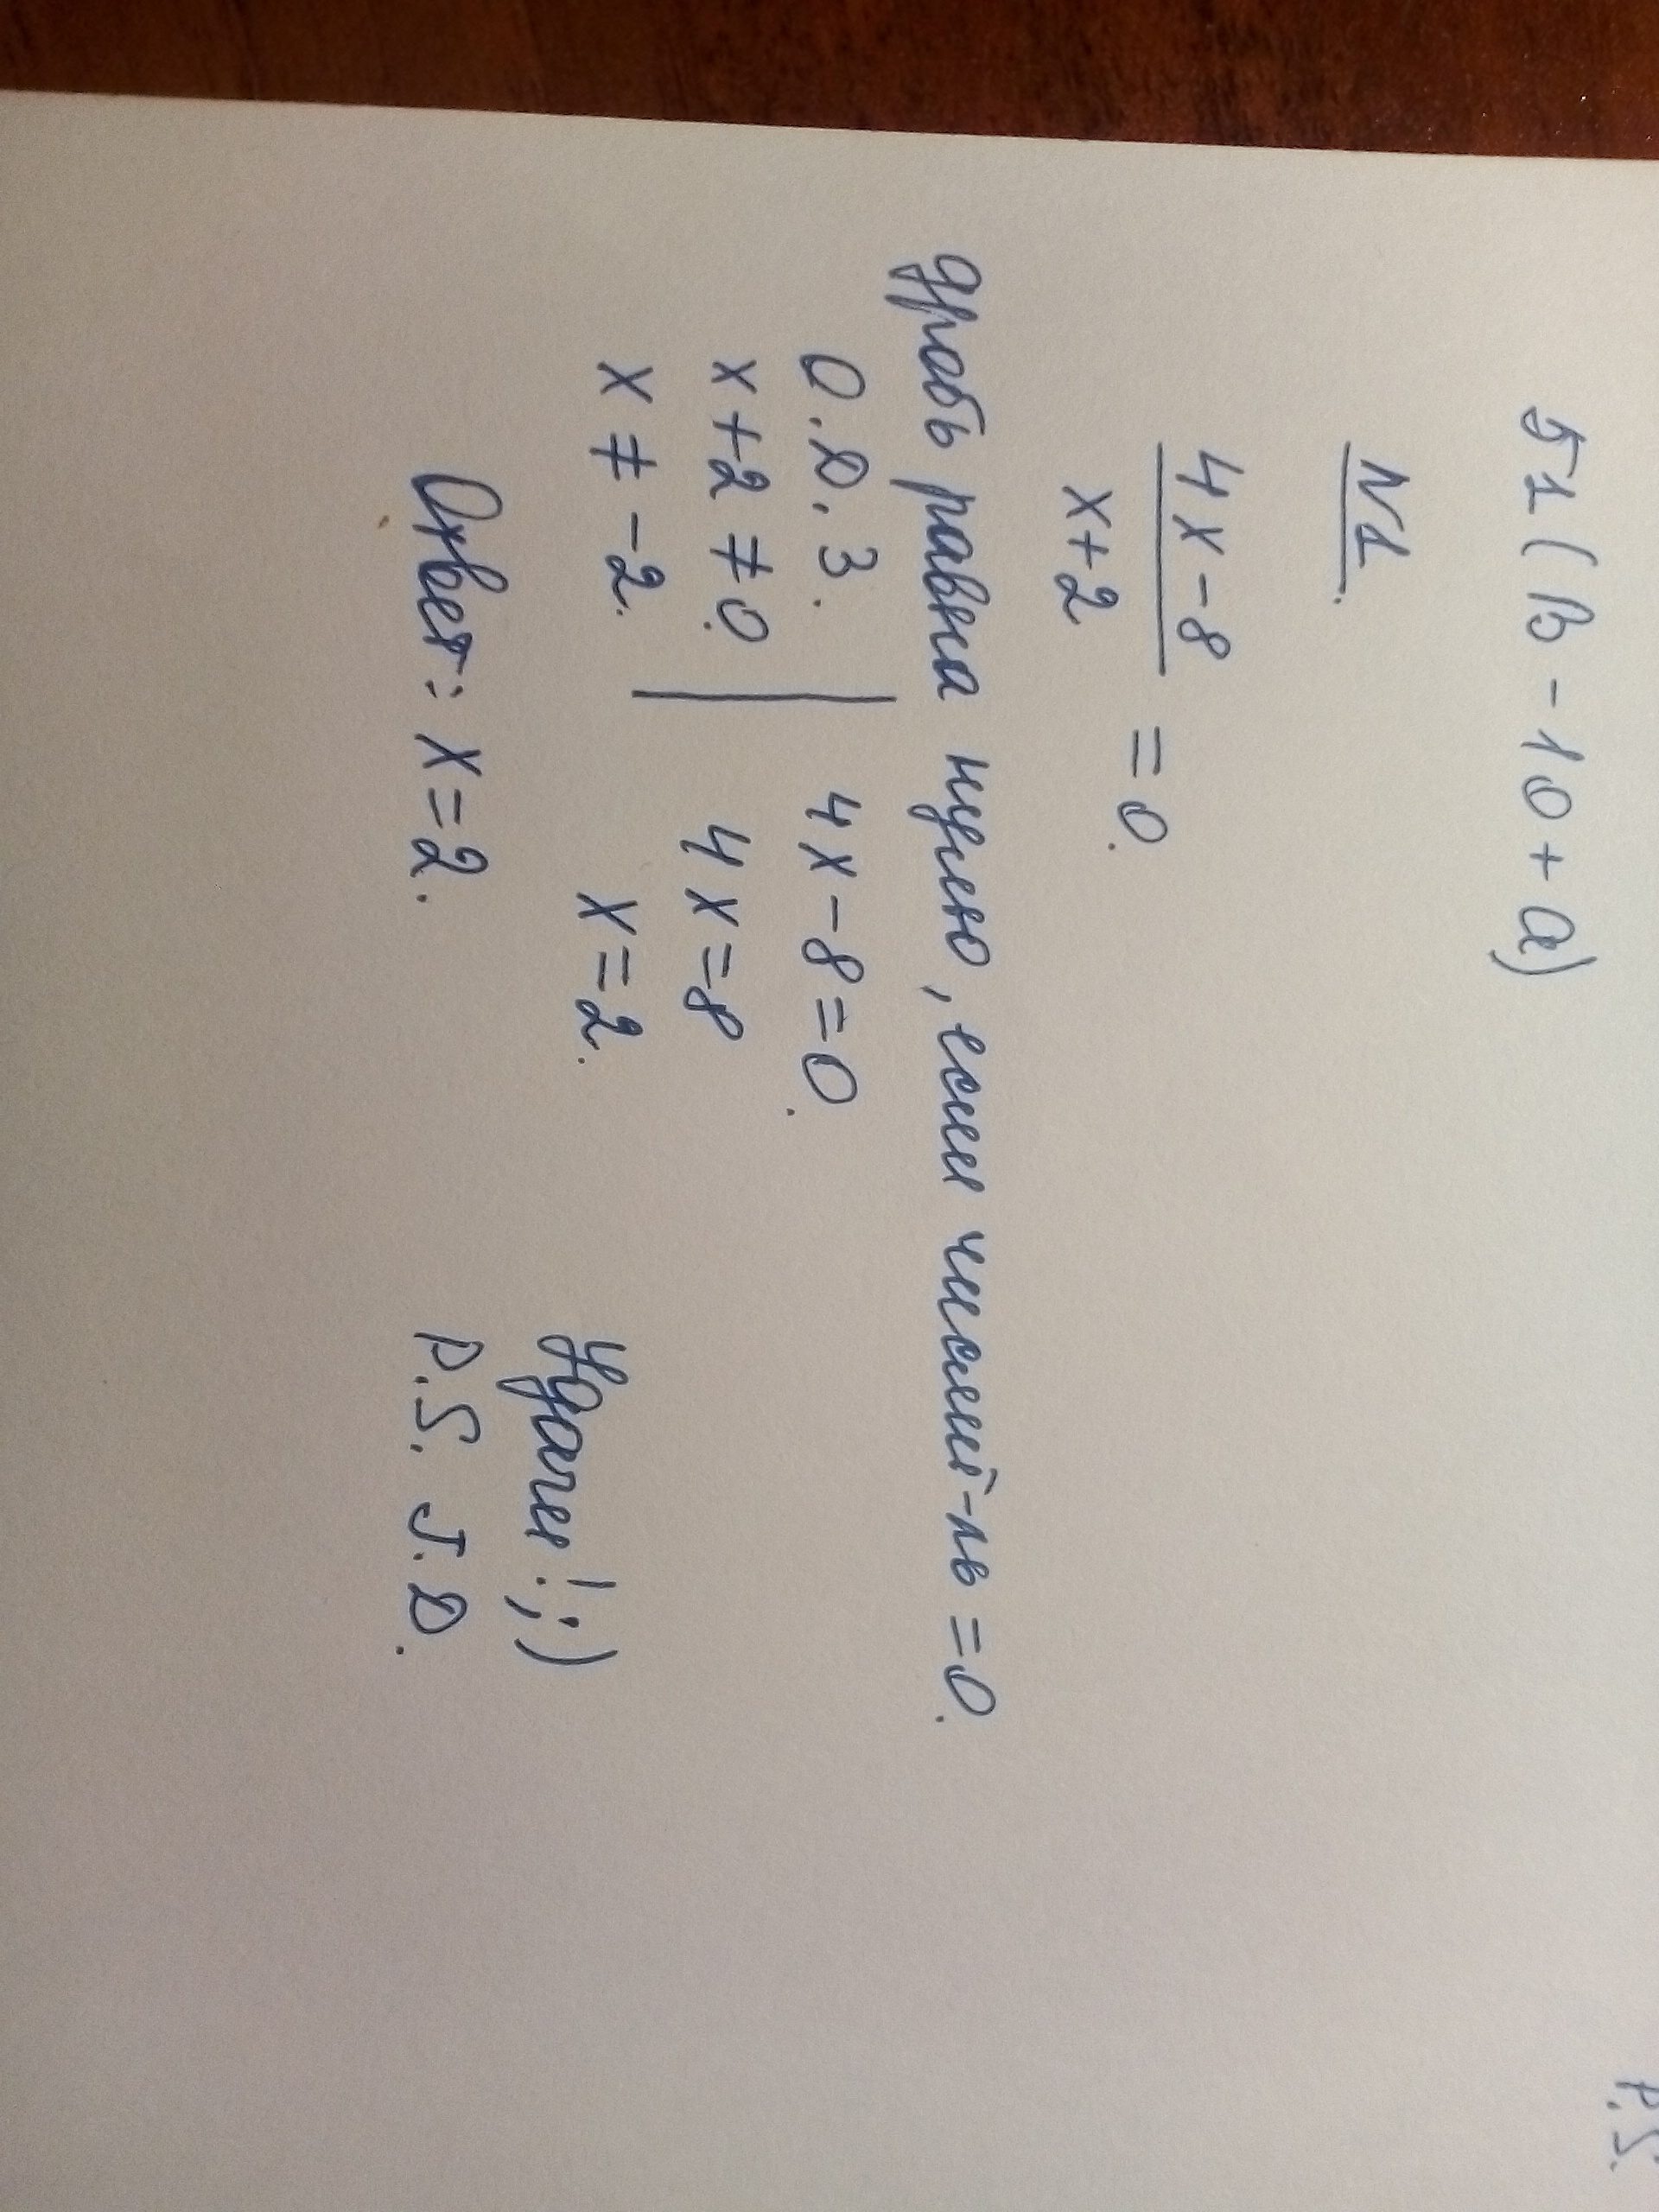 51(В-10+а)
N1.
4x-8
x+2
=0.
дробь равна нулю, если числит-ль =0.
О.D.З.
4x-8=0.
x+2≠0.
4x=8
x≠-2.
x=2.
Ответ: x=2.
Удачи! ;)
P.S. J.D.
P.S.